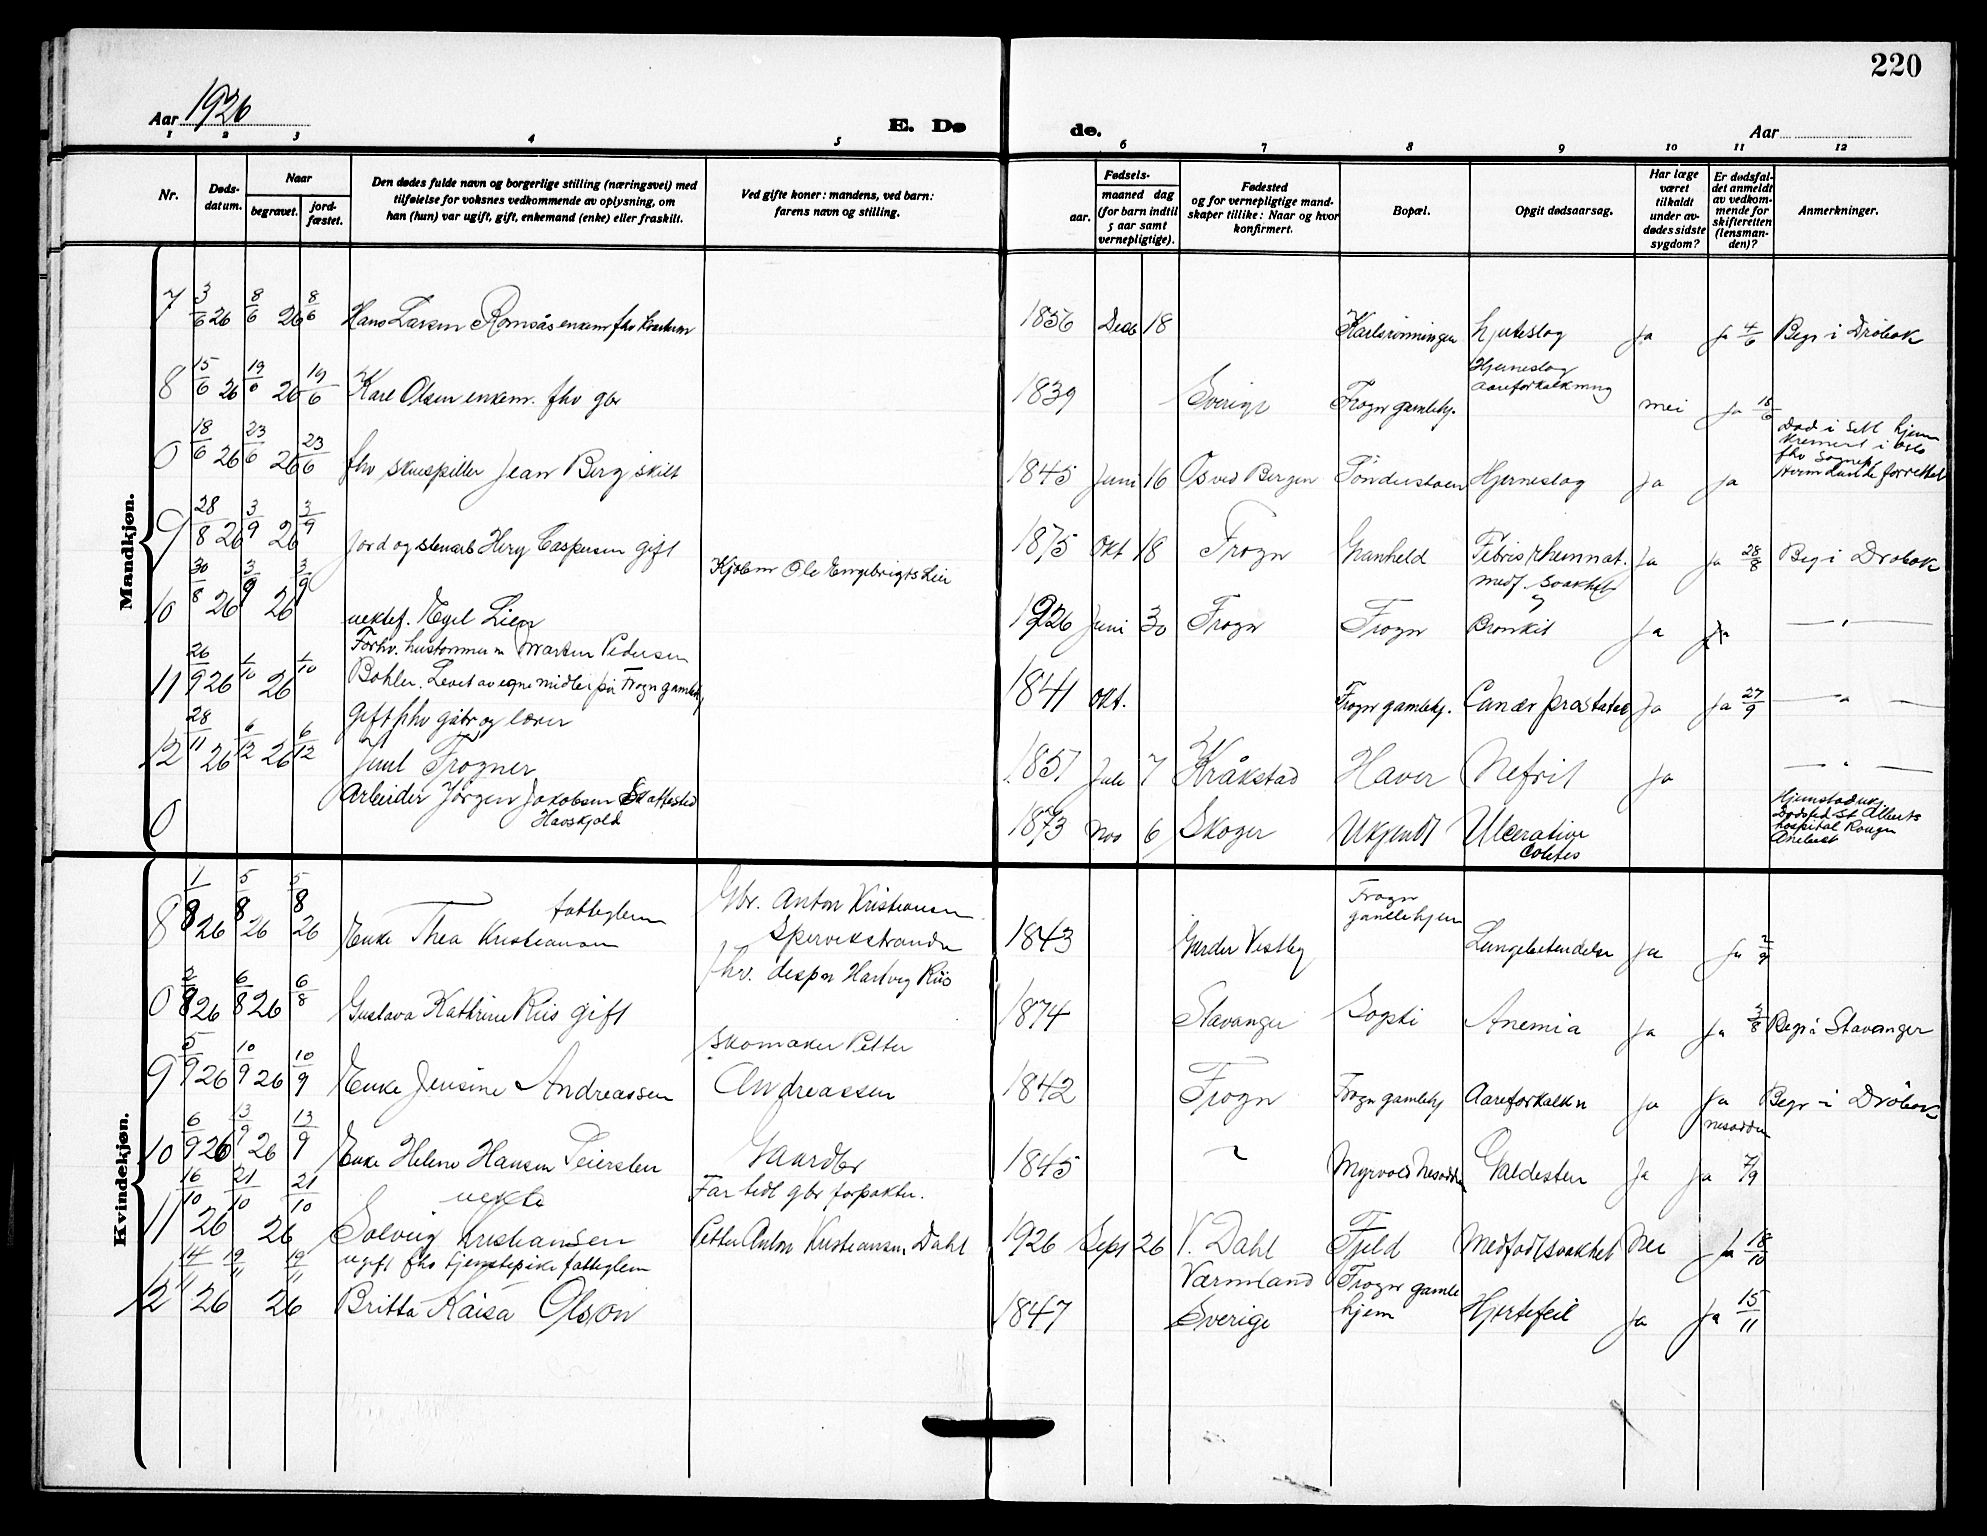 220
Aar 1926
E. Dø
de.
Aar
1 2 3 4 5 6 7 8 9 10 11 12
Nr.
Døds-
datum.
Naar
begravet.
jord-
fæstet.
Den dødes fulde navn og borgerlige stilling (næringsvei) med
tilføielse for voksnes vedkommende av oplysning, om
han (hun) var ugift, gift, enkemand (enke) eller fraskilt.
Ved gifte koner: mandens, ved barn:
farens navn og stilling.
Fødsels-
aar.
maaned dag
(for barn indtil
5 aar samt
vernepligtige).
Fødested
og for vernepligtige mand-
skaper tillike: Naar og hvor
konfirmert.
Bopæl.
Opgit dødsaarsag.
Har læge
været
tilkaldt
under av-
dødes sidste
sygdom?
Er dødsfal-
det anmeldt
av vedkom-
mende for
skifteretten
(lensman-
den)?
Anmerkninger.
Mandkjøn.
7 3/6 26 8/6 26 8/6 Hans Larsen Romsås enkem fhv 1856 Desb 18 Karlsrønningen hjerteslag Ja Ja 4/6 Begr i Drøbak
8 15/6 26 19/6 26 19/6 Karl Olsen enkem. fhv gbr 1839 Sverige Frogn gamlehj. Hjerneslag
aareforkalkning nei Ja 18/6
0 18/6 26 23/6 26 23/6 fhv skuespiller Jean Berg skilt 1845 Juni 16 Os ved Bergen Hjerneslag Ja Ja Død i sitt hjem
kremert i Oslo
fhv Sognepr
forrettet
9 28/8 26 3/9 26 3/9 Jord og stenarb Herg Caspersen gift 1875 Okt 18 Frogn Granheld Febris rheumat. Ja Ja 28/8 Begr i Drøbak
10 30/8 26 3/9 26 3/9 uektef. Egil Lien Kjøbm Ole Engebrigts Lier 1926 Juni 30 Frogn Frogn medf. svakhet
Bronkit Ja Ja — " —
11 26/9 26 1/10 26 1/10 Forhv. hustømmerm Martin Pedersen
Bohler. Levet av egne midler på Frogn gamlehj 1841 Okt. Frogn gamlehj. Cancer prostatae Ja Ja 27/9 — " —
12 28/11 26 6/12 26 6/12 Gift fhv gbr og lærer
Juul Frogner 1851 Juli 7 Kråkstad Haver Nefrit Ja — " —
0 Arbeider Jørgen Jakobsen Skatfested
Havskjold 1873 Nov 6 Skoger Ukjendt Ulcerative
Colites
Dødsfed St Alberts
hospital Rouyn
Kvindekjøn.
8 1/8 26 5/8 26 5/8 26 fattiglem
Enke Thea Kristiansen Gbr. Anton Kristiansen
Spervikstranda 1843 Garder Vestby Frogn
gamlehjem Lungebetendelse Ja Ja 2/9
0 2/8 26 6/8 26 6/8 Gustava Kathrine Riis gift fhv. despon Hartvig Riis 1874 Stavanger Sogsti Anemia Ja Ja 3/8 Begr i Stavanger
9 5/9 26 10/9 26 10/9 Enke Jensine Andreassen Skomaker Petter
Andreassen 1842 Frogn Frogn gamlehj Aareforkalkn Ja Ja Begr i Drøbak
10 6/9 26 13/9 26 13/9 Enke Helene Hansen Teiersten Gaardbr 1845 " Myrvold Nesodden Galdesten Ja nesodden
Ja 7/9
11 16/10 26 21/10 26 21/10 uekte
Solveig Kristiansen Far tidl gbr forpakter.
Petter Anton Kristiansen Dahl 1926 Sept 26 V. Dahl Fjeld Medfødt svakhet Nei Ja 18/10
12 14/11 26 19/11 26 19/11 ugift fhv tjenestepike fattiglem
Britta Kaisa Olsson 1847 Värmland
Sverige Frogn gamle
hjem Hjertefeil Ja Ja 15/11